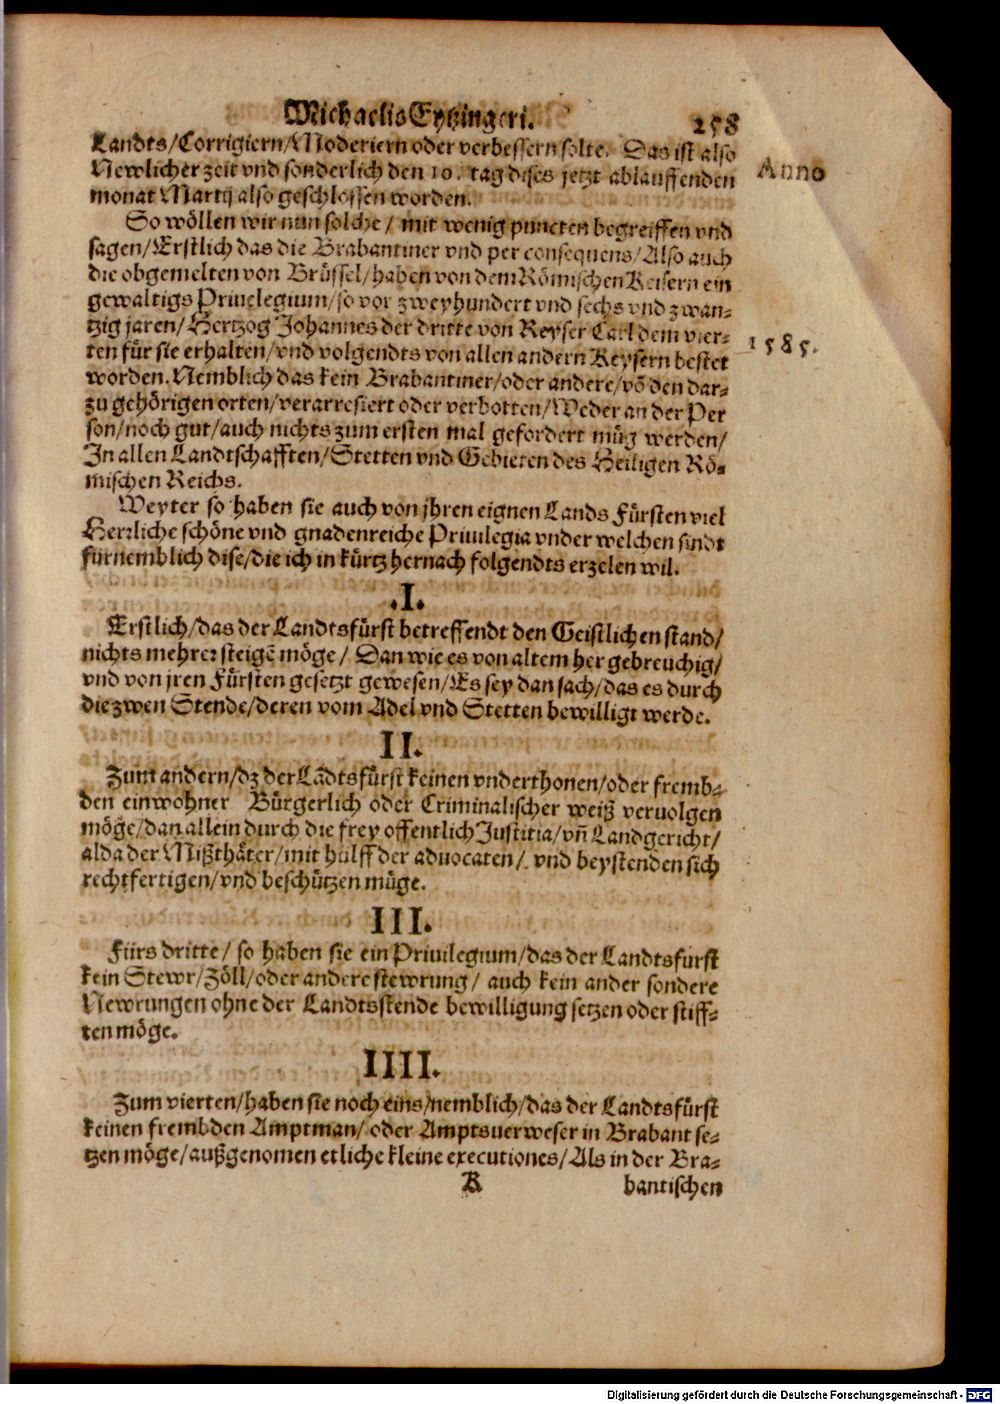 Michaelis Eytzingeri. 258
Landts/Corrigiern/Moderiern oder verbessern solte. Das ist also
Newlicher zeit vnd sonderlich den 10. tag dises jetzt ablauffenden
Anno
monat Martij also geschlossen worden.
So wöllen wir nun solche / mit wenig puncten begreiffen vnd
sagen/Erstlich das die Brabantiner vnd per consequens/Also auch
die obgemelten von Brüssel/haben von dem Römischen Keisern ein
gewaltigs Priuelegium/so vor zweyhundert vnd sechs vnd zwan-
tzig jaren/Hertzog Johannes der dritte von Keyser Carl dem vier-
1585.
ten für sie erhalten/vnd volgendts von allen andern Keysern bestet
worden. Nemblich das kein Brabantiner/oder andere/võ den dar-
zu gehörigen orten/verarresiert oder verbotten/Weder an der Per
son/noch gut/auch nichts zum ersten mal gefordert müg werden/
In allen Landtschafften/Stetten vnd Gebieten des Heiligen Rö-
mischen Reichs.
Weyter so haben sie auch von jhren eignen Lands Fürsten viel
Herrliche schöne vnd gnadenreiche Priuilegia vnder welchen sindt
fürnemblich dise/die ich in kürtz hernach folgendts erzelen wil.
.I.
Erstlich/das der Landtsfürst betreffendt den Geistlichen stand/
nichts mehrer steigẽ möge/ Dan wie es von altem her gebreuchig/
vnd von jren Fürsten gesetzt gewesen/Es sey dan sach/das es durch
die zwen Stende/deren vom Adel vnd Stetten bewilligt werde.
II.
Zum andern/dz der Lãdtsfürst keinen vnderthonen/oder fremb-
den einwohner Bürgerlich oder Criminalischer weiß vervolgen
möge/dan allein durch die frey offentlich Justitia/vñ Landgericht/
alda der Mißthäter/mit hülff der aduocaten/. vnd beystenden sich
rechtfertigen/vnd beschützen müge.
III.
Fürs dritte/ so haben sie ein Priuilegium/das der Landtsfürst
kein Stewr/Zöll/oder andere stewrung/ auch kein ander sondere
Newrungen ohne der Landtsstende bewilligung setzen oder stiff-
ten möge.
IIII.
Zum vierten/haben sie noch eins/nemblich/das der Landtsfürst
keinen frembden Amptman/ oder Amptsuerweser in Brabant se-
tzen möge/außgenomen etliche kleine executiones/Als in der Bra-
K bantischen
Digitalisierung gefördert durch die Deutsche Forschungsgemeinschaft - DFG